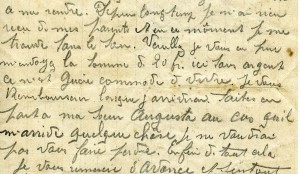 a me rendre. Depuis longtemps je n'ai rien
recu de mes parents et en ce moment je me
trouve sans le sou. Veuillez je vous en prie
m'envoyer la somme de 20 fr. ici sans argent
ce n'est Guère commode de vivre. je vous
Rembourserai lorsque j'arriverai. faites en
part a ma sœur Augusta au cas qu'il
m'arrive quelque chose je ne voudrai
pas vous faire perdre. Enfin de tout cela
je vous remercie d'Avance et surtout